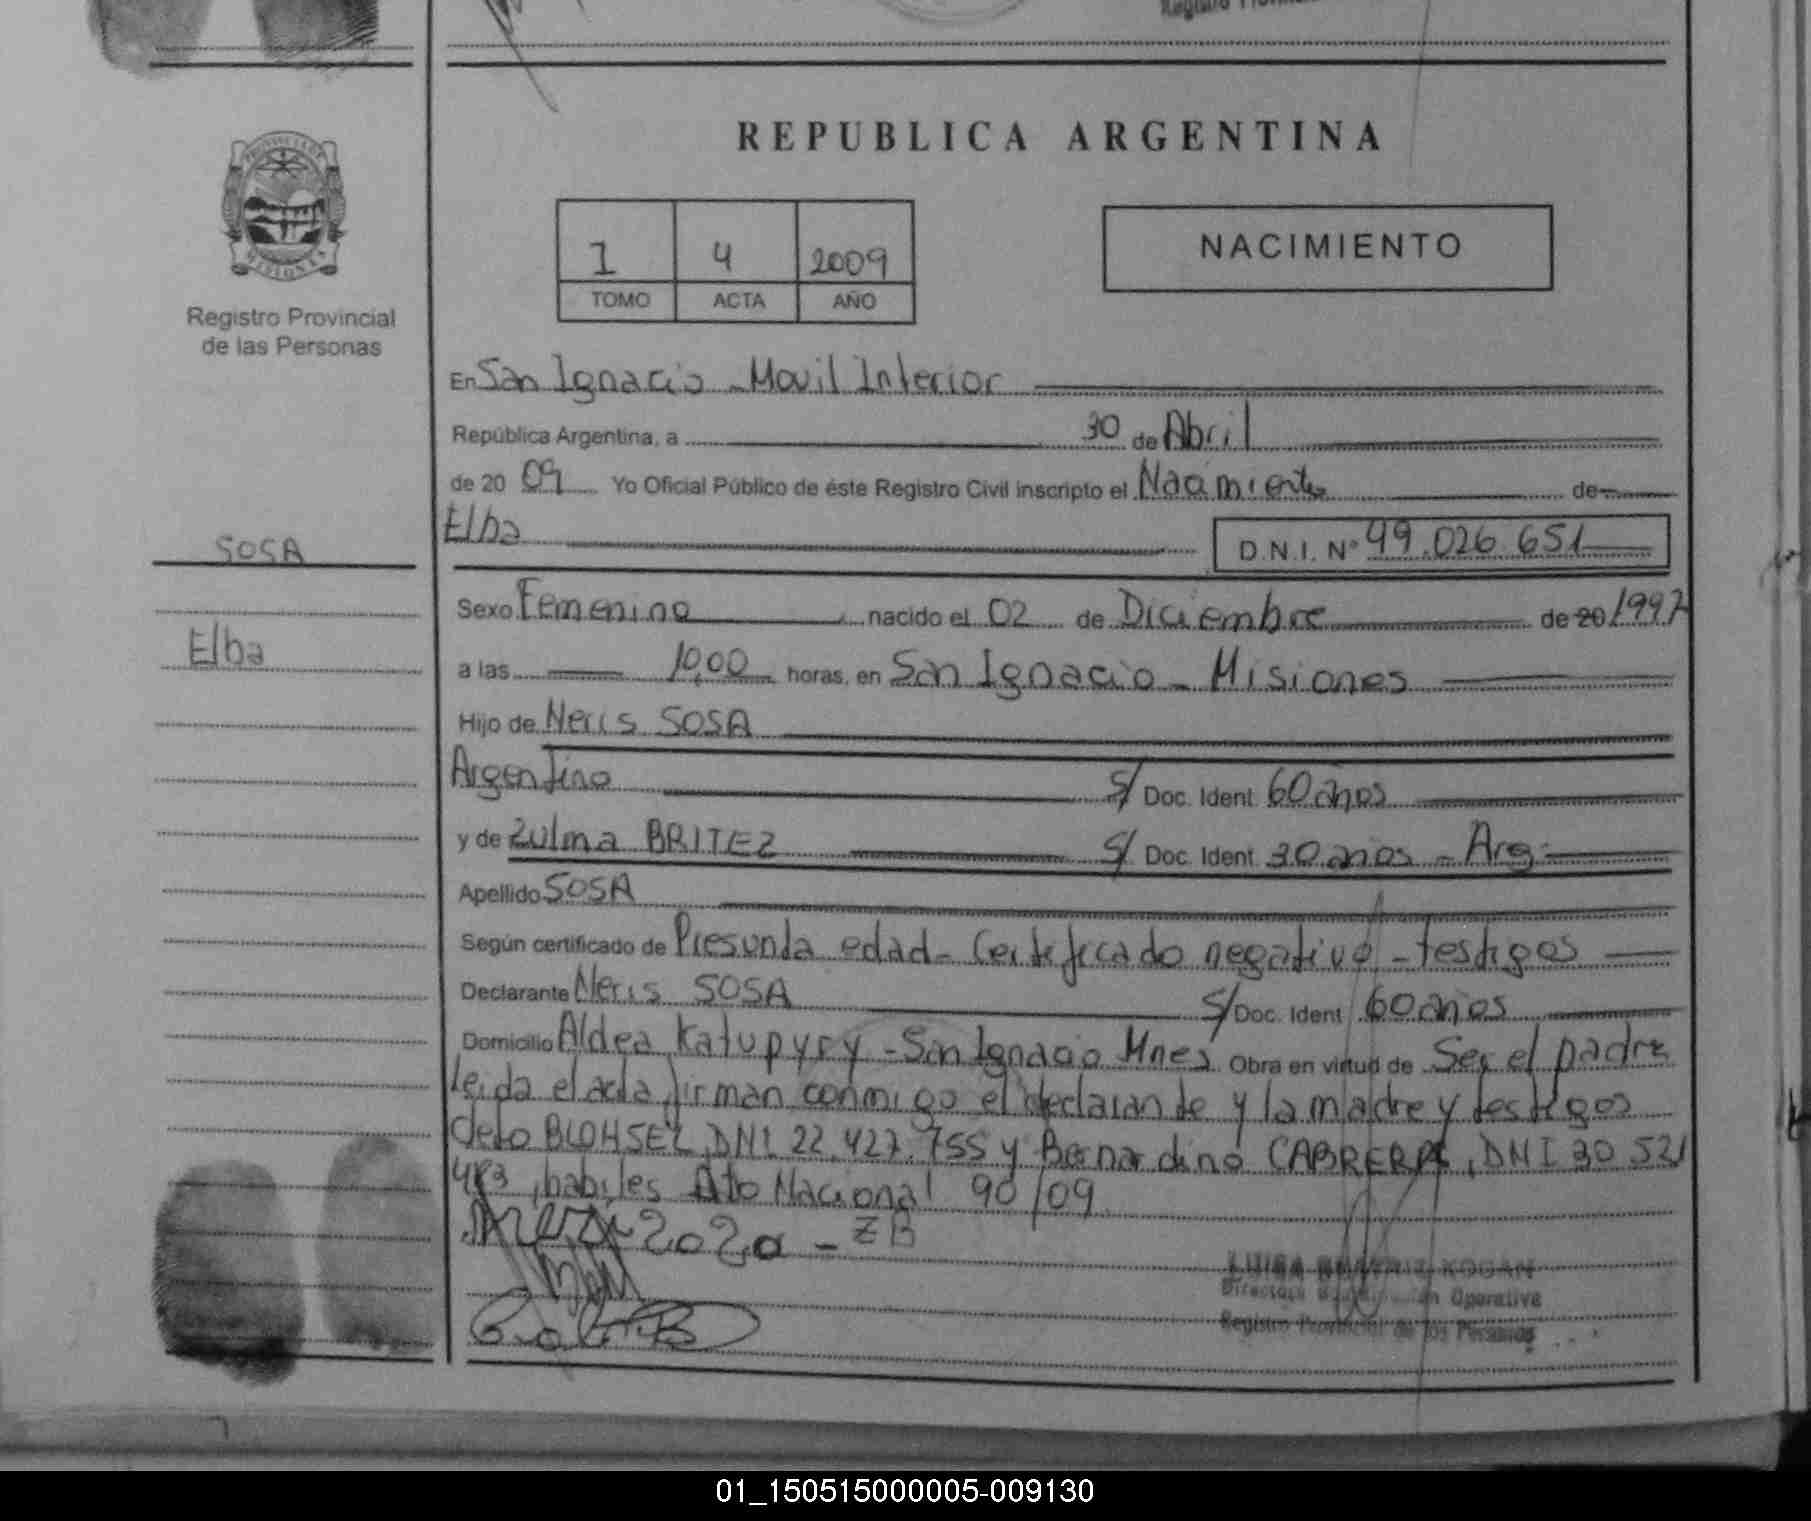 Registro
REPUBLICA ARGENTINA
1 4 2009
TOMO ACTA AÑO
NACIMIENTO
PROVINCIA DE MISIONES
Registro Provincial
de las Personas
En San Ignacio - Movil Interior
República Argentina, a 30 de Abril
de 2009 Yo Oficial Público de éste Registro Civil inscripto el Nacimiento de
SOSA
Elba
Elba D.N.I. Nº 49.026.651
Sexo Femenino nacido el 02 de Diciembre de 20 1997
a las 10,00 horas, en San Ignacio - Misiones
Hijo de Neris SOSA
Argentino S/ Doc. Ident. 60 años
y de Zulma BRITEZ S/ Doc. Ident. 30 años - Arg.
Apellido SOSA
Según certificado de Presunta edad - Certificado negativo - testigos
Declarante Neris SOSA S/ Doc. Ident. 60 años
Domicilio Aldea Katupyry - San Ignacio Mnes Obra en virtud de Ser el padre
leida el acta firman conmigo el declarante y la madre y testigos
BLOHSEL, DNI 22.427.755 y Bernardino CABRERA, DNI 30 521
483, habiles Dto Nacional 90/09
ZB
LUISA BEATRIZ KOGAN
Directora Operativa
Registro Provincial de las Personas
01_150515000005-009130